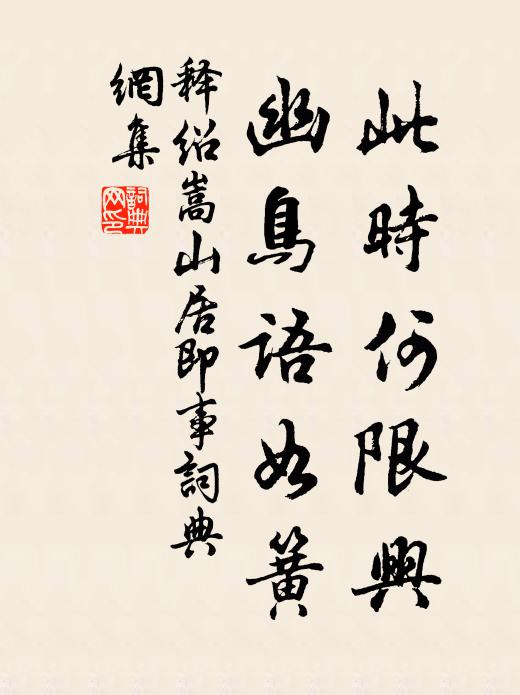 此時何限興
幽鳥語如簧
释绍嵩山居即事詞典
網集
詞典
网印